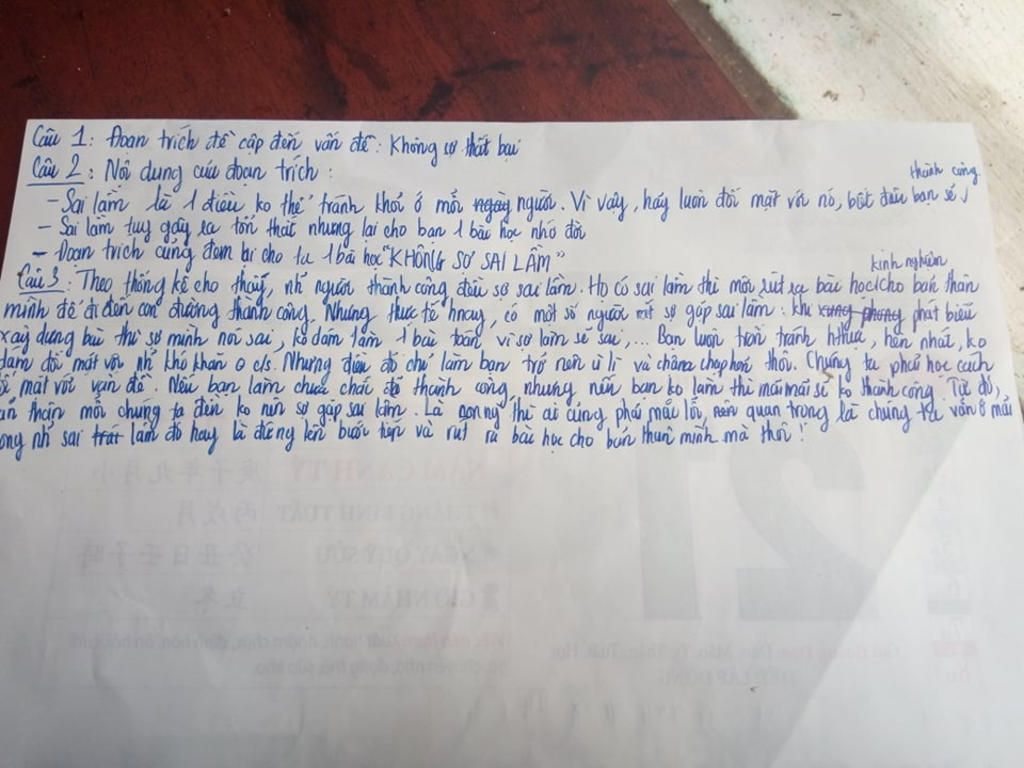 Câu 1: Đoạn trích đề cập đến vấn đề: Không sợ thất bại
Câu 2: Nội dung của đoạn trích:
thành công
- Sai lầm là 1 điều ko thể tránh khỏi ở mỗi ngày người. Vì vậy, hãy luôn đối mặt với nó, bắt đầu bạn sẽ
- Sai lầm tuy gây ra tổn thất nhưng lại cho bạn 1 bài học nhớ đời
- Đoạn trích cũng đem lại cho ta 1 bài học "KHÔNG SỢ SAI LẦM"
kinh nghiệm
Câu 3: Theo thống kê cho thấy, nh người thành công đều sợ sai lầm. Họ có sai lầm thì mới rút ra bài học cho bản thân
mình để đi đến con đường thành công. Nhưng thực tế hnay, có một số người rất sợ gặp sai lầm: khi xung phong phát biểu
xây dựng bài thì sợ mình nói sai, ko dám làm 1 bài toán vì sợ làm sẽ sai,... Bạn luôn trốn tránh, hèn nhát, ko
dám đối mặt với nh khó khăn c/s. Nhưng điều đó chỉ làm bạn trở nên ù lì và chậm chạp thôi. Chúng ta phải học cách
mặt với vấn đề. Nếu bạn làm chưa chắc đã thành công, nhưng nếu bạn ko làm thì mãi mãi sẽ ko thành công. Từ đó,
thận mỗi chúng ta đều ko nên sợ gặp sai lầm. Là con ng thì ai cũng phải mắc lỗi, nên quan trọng là chúng ta vẫn ở mãi
ong nh sai trái lầm đó hay là đứng lên bước tiếp và rút ra bài học cho bản thân mình mà thôi!
21
NĂM CANH TÝ 庚子年九月小
THÁNG BÍNH TUẤT 丙戌月
NGÀY QUÝ SỬU 癸丑日壬子時
GIỜ NHÂM TÝ 立冬